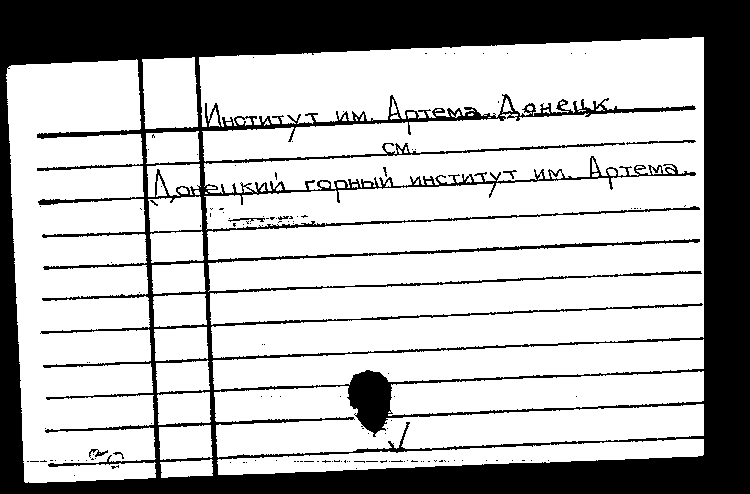 Институт им. Артема. Донецк.
см.
Донецкий горный институт им. Артема.